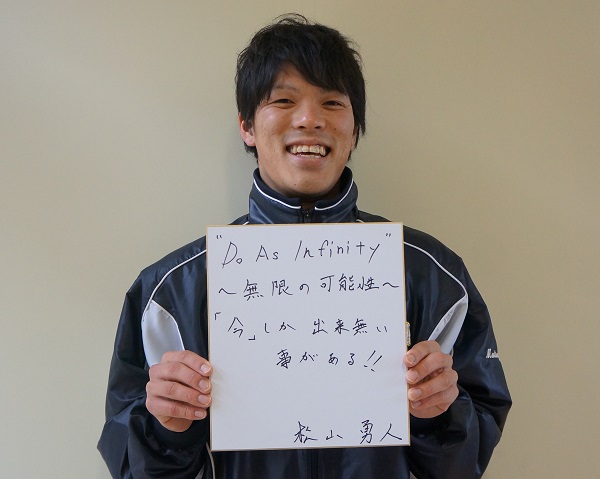 "Do As Infinity"
～無限の可能性～
「今」しか出来無い
事がある!!
松山勇人